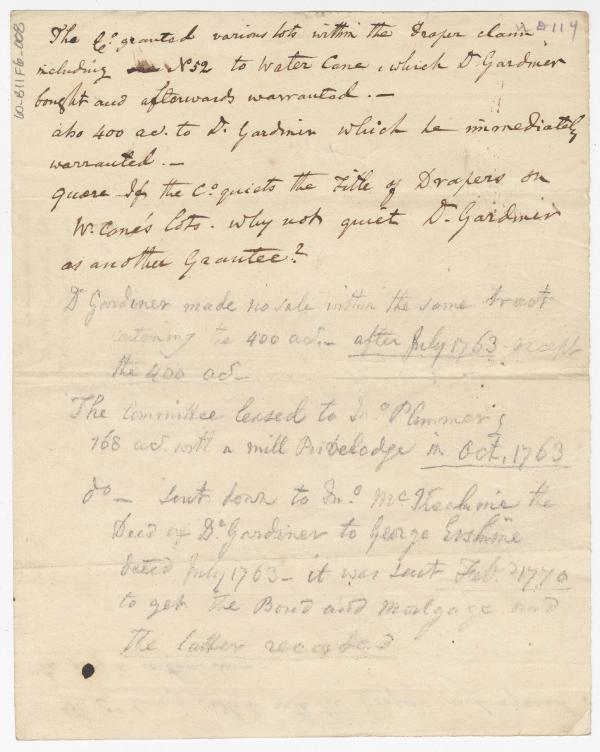 W B 114
10-B11F6-008
The Co. granted various lots within the Draper claim
including N 52 to Water Cone, which Dr. Gardiner
bought and afterwards warranted. —
also 400 ac. to Dr. Gardiner which he immediately
warranted. —
quære If the Co. quiets the Title of Drapers on
W. Cone's lots. why not quiet Dr. Gardiner
as another Grantee?
Dr Gardiner made no sale within the same tract
containing the 400 ac. — after July 1763 except
the 400 ac —
The Committee leased to Jno. Plummer
168 ac. with a mill Priveledge in Oct. 1763
do — sent down to Jno. McKechnie the
Deed of Dr. Gardiner to George Erskine
Dated July 1763 — it was sent Feb. 1770
to get the Bond and Mortgage and
the latter recorded